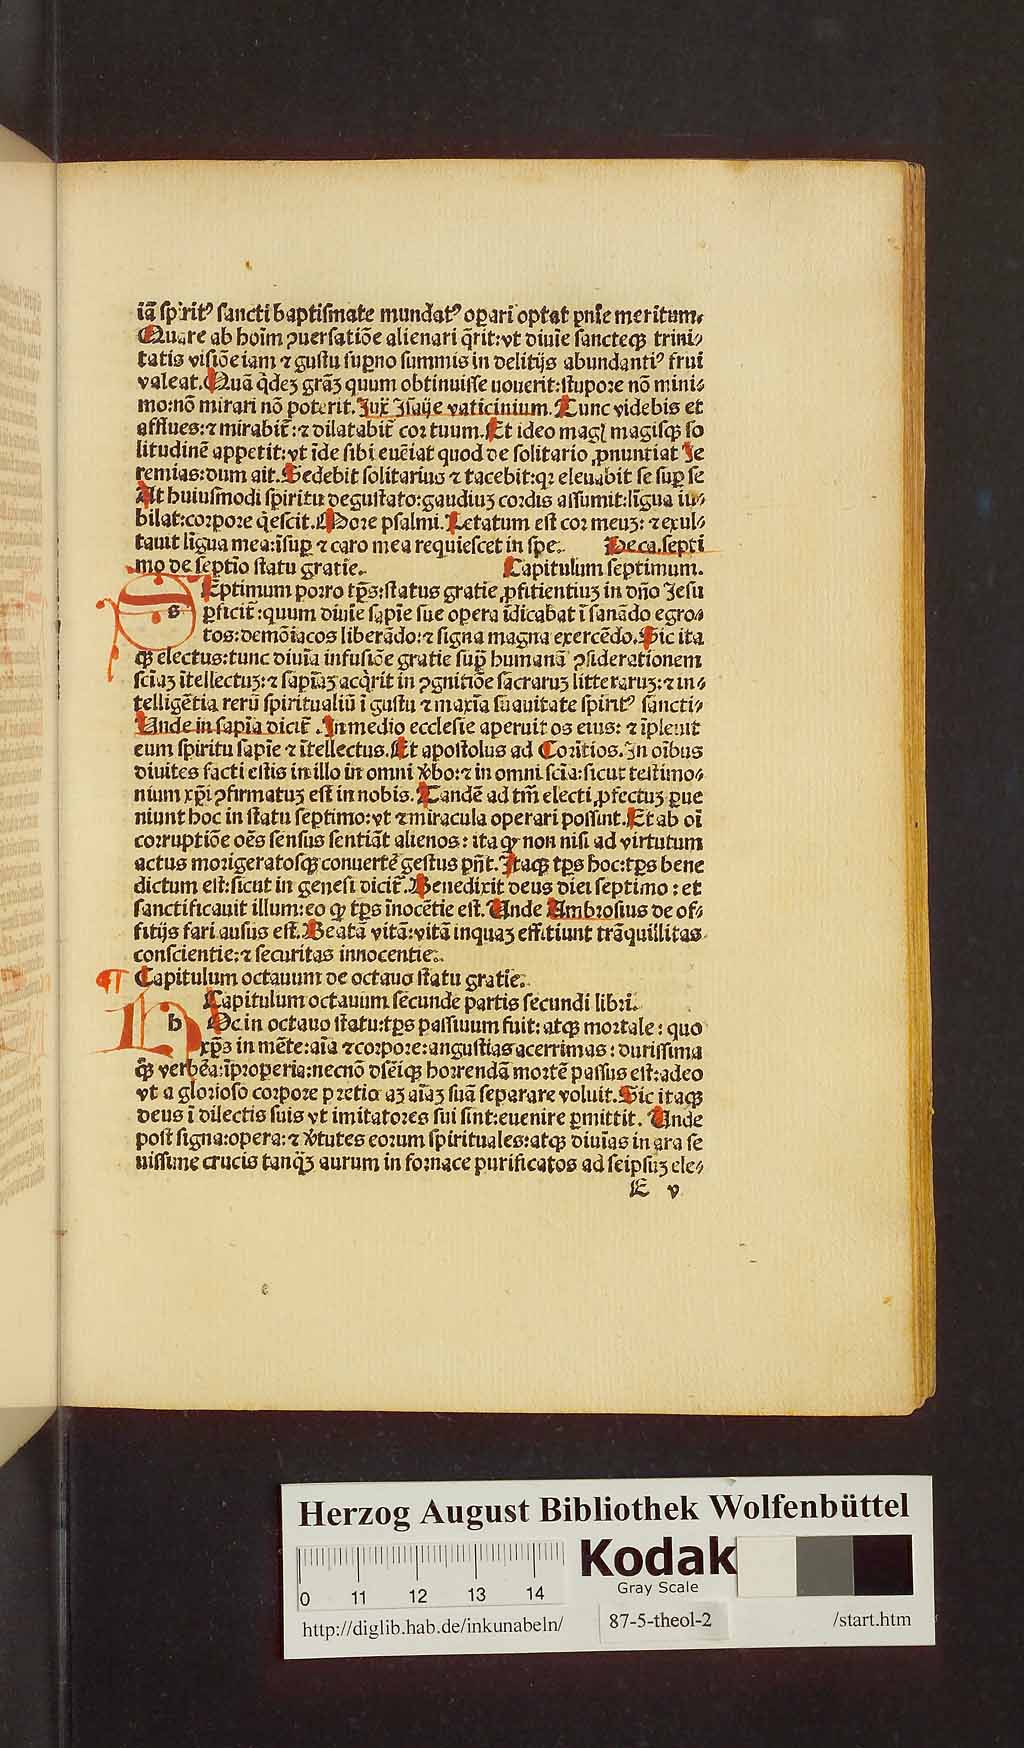 iã spiritꝰ sancti baptismate mundatꝰ oꝑari optat pnĩe meritum.
Quare ab hoĩm ꝯuersatiõe alienari q̃rit: vt diuĩe sancteqꝫ trini⸗
tatis visiõe iam ⁊ gustu suꝑno summis in delitijs abundantiꝰ frui
valeat. Quã q̇dez gr̃az quum obtinuisse uouerit: stupore nõ mini⸗
mo: nõ mirari nõ poterit. Juxͭ Isaije vaticinium. Tunc videbis et
afflues: ⁊ mirabit̃: ⁊ dilatabit̃ cor tuum. Et ideo magꝭ magisqꝫ so
litudinẽ appetit: vt ĩde sibi euẽiat quod de solitario ꝓnuntiat Je
remias: dum ait. Sedebit solitarius ⁊ tacebit: qꝛ eleuabit se suꝑ se
At huiusmodi spiritu degustato: gaudiuz cordis assumit: lĩgua iu⸗
bilat: corpore q̇escit. More psalmi. Letatum est cor meuz: ⁊ exul⸗
tauit lĩgua mea: ĩsuꝑ ⁊ caro mea requiescet in spe. De ca. septĩ
mo de septĩo statu gratie. Capitulum septimum.
s SEptimum porro tp̃s: status gratie ꝓfitientiuz in dñõ Jesu
ꝑficit̃: quum diuĩe sapĩe sue opera ĩdicabat ĩ sanãdo egro⸗
tos: demõiacos liberãdo: ⁊ signa magna exercẽdo. Sic ita
qꝫ electus: tunc diuĩa infusiõe gratie suꝑ humanã ꝯsiderationem
scĩaz ĩtellectuz: ⁊ sapĩaz acq̇rit in ꝯgnitiõe sacraruz litteraruz: ⁊ in⸗
telligẽtia rerũ spiritualiũ ĩ gustu ⁊ maxĩa suauitate spiritꝰ sancti⸗
Unde in sapĩa dicit̃. In medio ecclesie aperuit os eius: ⁊ ĩpleuit
eum spiritu sapĩe ⁊ ĩtellectus. Et apostolus ad Corĩtios. In oĩbus
diuites facti estis in illo in omni v̾bo: ⁊ in omni scĩa: sicut testimo⸗
nium xp̃i ꝯfirmatuz est in nobis. Tandẽ ad tm̃ electi ꝓfectuz ꝑue
niunt hoc in statu septimo: vt ⁊ miracula operari possunt. Et ab oĩ
corruptiõe oẽs sensus sentiãt alienos: ita qꝙ non nisi ad virtutum
actus morigeratosqꝫ conuertẽ gestus pñt. Itaqꝫ tp̃s hoc: tp̃s bene
dictum est: sicut in genesi dicit̃. Benedixit deus diei septimo: et
sanctificauit illum: eo ꝙ tp̃s ĩnocẽtie est. Unde Ambrosius de of⸗
fitijs fari ausus est. Beatã vitã: vitã inquaz effitiunt trãquillitas
conscientie: ⁊ securitas innocentie.
¶ Capitulum octauum de octauo statu gratie.
Capitulum octauum secunde partis secundi libri.
h HOc in octauo statu: tp̃s passiuum fuit: atqꝫ mortale: quo
xp̃z in mẽte: aĩa ⁊ corpore: angustias acerrimas: durissima
qꝫ verbẽa: ĩproperia: necnõ dñẽiqꝫ horrendã mortẽ passus est: adeo
vt a glorioso corpore pretio az aĩaz suã separare voluit. Sic itaqꝫ
deus ĩ dilectis suis vt imitatores sui sint: euenire ꝑmittit. Unde
post signa: opera: ⁊ v̾tutes eorum spirituales: atqꝫ diuĩas in ara se
uissime crucis tanq̃z aurum in fornace purificatos ad seipsuz ele⸗
E v
Herzog August Bibliothek Wolfenbüttel
0 11 12 13 14
Kodak
Gray Scale
http://diglib.hab.de/inkunabeln/ 87-5-theol-2 /start.htm